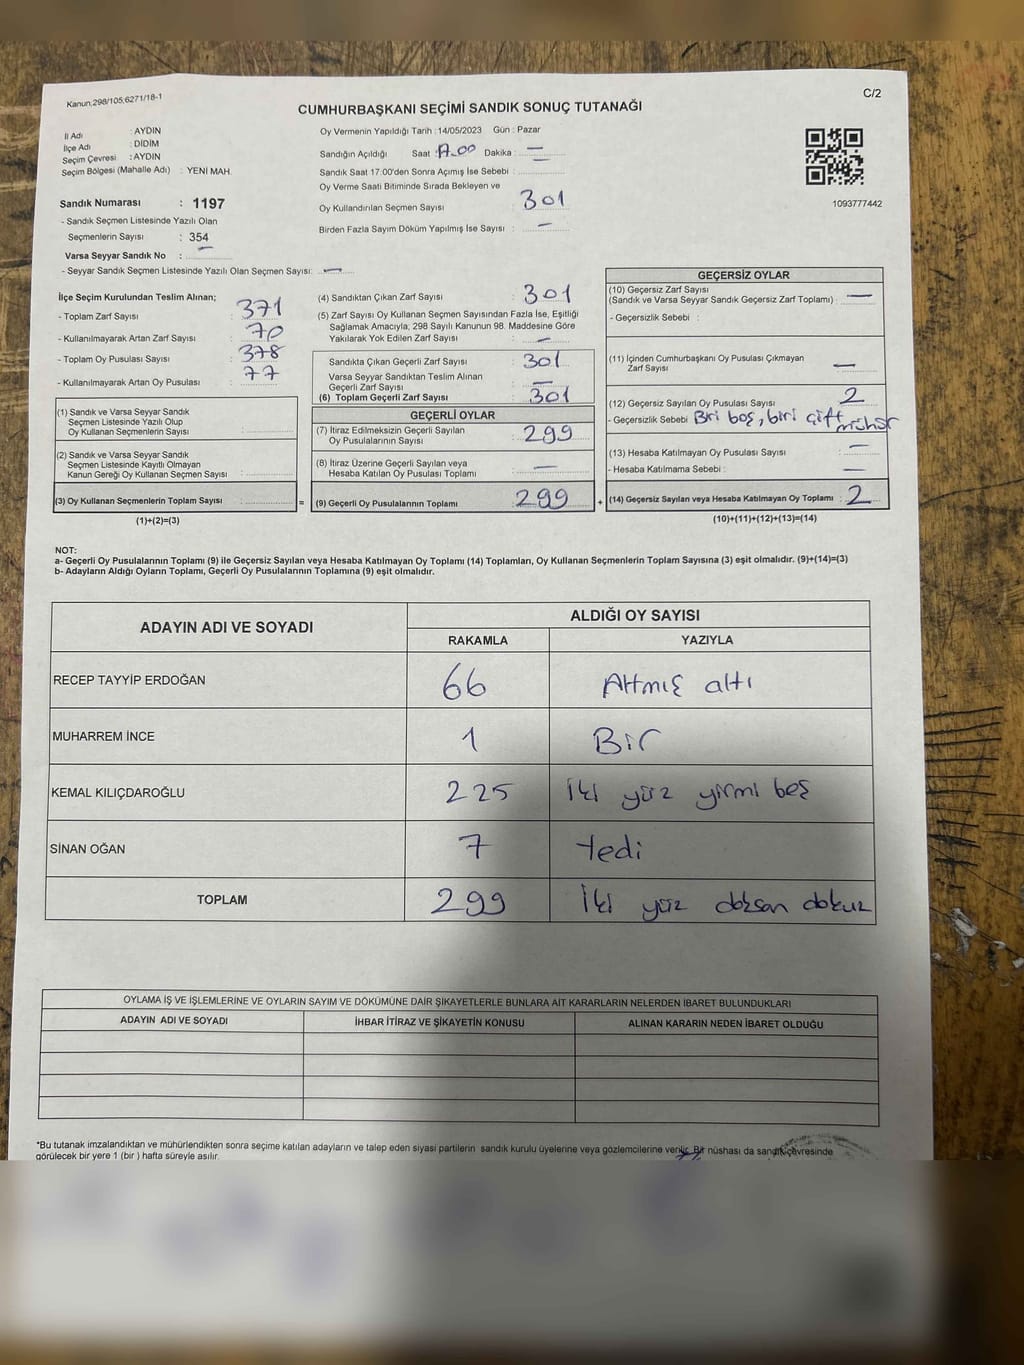 Kanun,298/105,6271/18-1
C/2
CUMHURBAŞKANI SEÇİMİ SANDIK SONUÇ TUTANAĞI
İl Adı : AYDIN
İlçe Adı : DİDİM
Seçim Çevresi : AYDIN
Seçim Bölgesi (Mahalle Adı) : YENİ MAH.
Sandık Numarası : 1197
- Sandık Seçmen Listesinde Yazılı Olan
Seçmenlerin Sayısı : 354
Varsa Seyyar Sandık No : —
- Seyyar Sandık Seçmen Listesinde Yazılı Olan Seçmen Sayısı: —
Oy Vermenin Yapıldığı Tarih : 14/05/2023 Gün : Pazar
Sandığın Açıldığı Saat : Dakika : —
Sandık Saat 17.00'den Sonra Açımış İse Sebebi : —
Oy Verme Saati Bitiminde Sırada Bekleyen ve
Oy Kullandırılan Seçmen Sayısı : 301
Birden Fazla Sayım Döküm Yapılmış İse Sayısı : —
1093777442
İlçe Seçim Kurulundan Teslim Alınan;
- Toplam Zarf Sayısı : 371
- Kullanılmayarak Artan Zarf Sayısı : 70
- Toplam Oy Pusulası Sayısı : 378
- Kullanılmayarak Artan Oy Pusulası : 77
(1) Sandık ve Varsa Seyyar Sandık
Seçmen Listesinde Yazılı Olup
Oy Kullanan Seçmenlerin Sayısı :
(2) Sandık ve Varsa Seyyar Sandık
Seçmen Listesinde Kayıtlı Olmayan
Kanun Gereği Oy Kullanan Seçmen Sayısı :
(3) Oy Kullanan Seçmenlerin Toplam Sayısı : =
(1)+(2)=(3)
(4) Sandıktan Çıkan Zarf Sayısı : 301
(5) Zarf Sayısı Oy Kullanan Seçmen Sayısından Fazla İse, Eşitliği
Sağlamak Amacıyla; 298 Sayılı Kanunun 98. Maddesine Göre
Yakılarak Yok Edilen Zarf Sayısı : —
Sandıkta Çıkan Geçerli Zarf Sayısı : 301
Varsa Seyyar Sandıktan Teslim Alınan
Geçerli Zarf Sayısı : —
(6) Toplam Geçerli Zarf Sayısı : 301
GEÇERLİ OYLAR
(7) İtiraz Edilmeksizin Geçerli Sayılan
Oy Pusulalarının Sayısı : 299
(8) İtiraz Üzerine Geçerli Sayılan veya
Hesaba Katılan Oy Pusulası Toplamı : —
(9) Geçerli Oy Pusulalarının Toplamı : 299 +
GEÇERSİZ OYLAR
(10) Geçersiz Zarf Sayısı
(Sandık ve Varsa Seyyar Sandık Geçersiz Zarf Toplamı) : —
- Geçersizlik Sebebi :
(11) İçinden Cumhurbaşkanı Oy Pusulası Çıkmayan
Zarf Sayısı : —
(12) Geçersiz Sayılan Oy Pusulası Sayısı : 2
- Geçersizlik Sebebi : Biri boş, biri çift mühür
(13) Hesaba Katılmayan Oy Pusulası Sayısı : —
- Hesaba Katılmama Sebebi : —
(14) Geçersiz Sayılan veya Hesaba Katılmayan Oy Toplamı : 2
(10)+(11)+(12)+(13)=(14)
NOT:
a- Geçerli Oy Pusulalarının Toplamı (9) ile Geçersiz Sayılan veya Hesaba Katılmayan Oy Toplamı (14) Toplamları, Oy Kullanan Seçmenlerin Toplam Sayısına (3) eşit olmalıdır. (9)+(14)=(3)
b- Adayların Aldığı Oyların Toplamı, Geçerli Oy Pusulalarının Toplamına (9) eşit olmalıdır.
ADAYIN ADI VE SOYADI
ALDIĞI OY SAYISI
RAKAMLA YAZIYLA
RECEP TAYYİP ERDOĞAN 66 Altmış altı
MUHARREM İNCE 1 Bir
KEMAL KILIÇDAROĞLU 225 İki yüz yirmi beş
SİNAN OĞAN 7 Yedi
TOPLAM 299 İki yüz doksan dokuz
OYLAMA İŞ VE İŞLEMLERİNE VE OYLARIN SAYIM VE DÖKÜMÜNE DAİR ŞİKAYETLERLE BUNLARA AİT KARARLARIN NELERDEN İBARET BULUNDUKLARI
ADAYIN ADI VE SOYADI İHBAR İTİRAZ VE ŞİKAYETİN KONUSU ALINAN KARARIN NEDEN İBARET OLDUĞU
*Bu tutanak imzalandıktan ve mühürlendikten sonra seçime katılan adayların ve talep eden siyasi partilerin sandık kurulu üyelerine veya gözlemcilerine verilir. Bir nüshası da sandık çevresinde
görülecek bir yere 1 (bir ) hafta süreyle asılır.